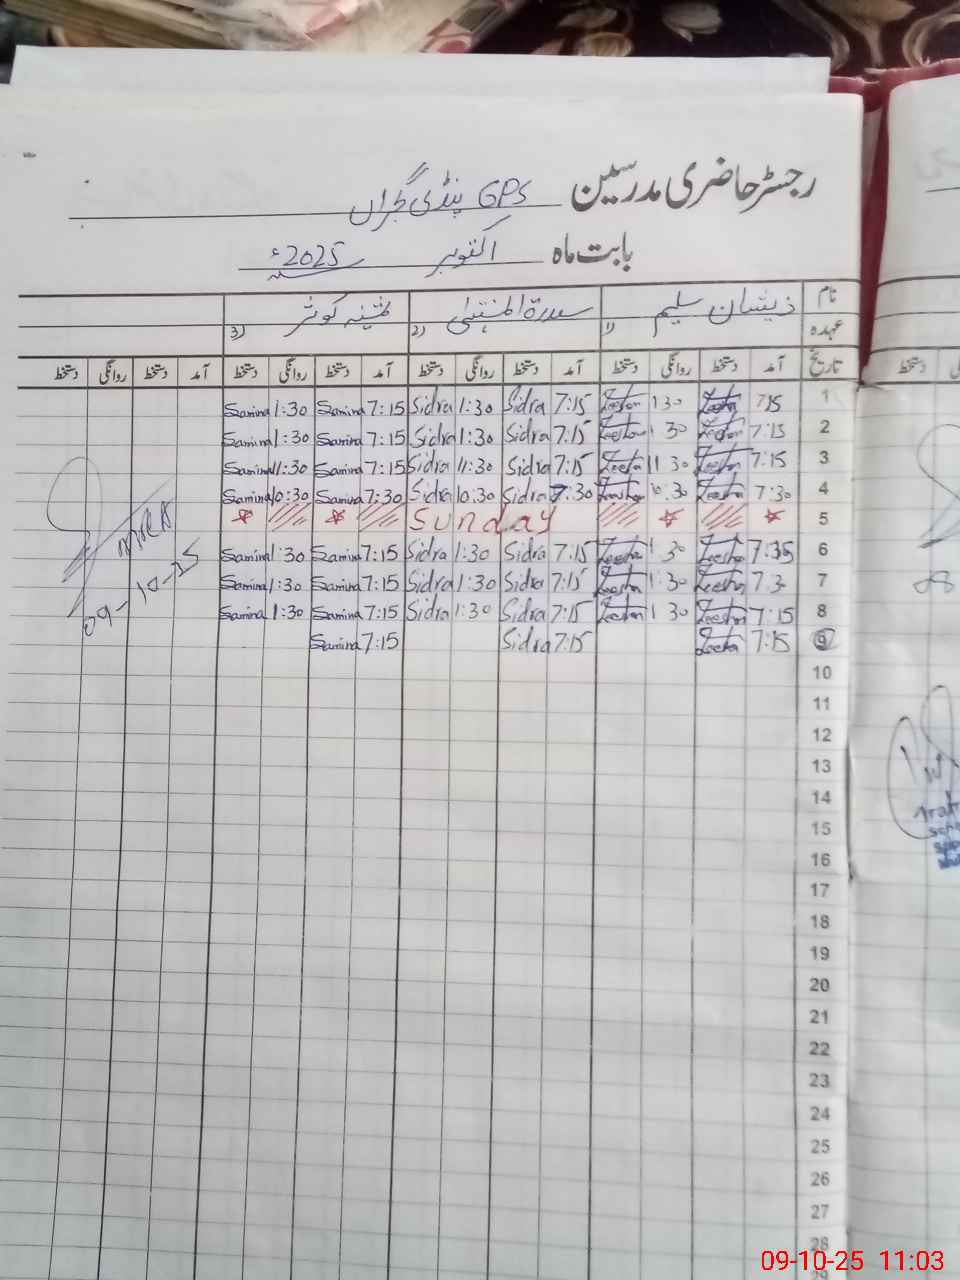 رجسٹر حاضری مدرسین GPS پنڈی گجراں
بابت ماہ اکتوبر 2025ء
نام ذیشان سلیم سدرۃ المنتہیٰ ثمینہ کوثر
عہدہ 1) 2) 3)
تاریخ آمد دستخط روانگی دستخط آمد دستخط روانگی دستخط آمد دستخط روانگی دستخط آمد دستخط روانگی دستخط
Samina 1:30 Samina 7:15 Sidra 1:30 Sidra 7:15 Zeeshan 1 30 Zeeshan 7 15 1
Samina 1:30 Samina 7:15 Sidra 1:30 Sidra 7:15 Zeeshan 1 30 Zeeshan 7:15 2
Samina 11:30 Samina 7:15 Sidra 11:30 Sidra 7:15 Zeesha 11 30 Zeeshan 7:15 3
Samina 10:30 Samina 7:30 Sidra 10:30 Sidra 7:30 Zeeshan 10:30 Zeesha 7:30 4
Sunday 5
Samina 1:30 Samina 7:15 Sidra 1:30 Sidra 7:15 Zeesha 1:30 Zeesha 6
Samina 1:30 Samina 7:15 Sidra 1:30 Sidra 7:15 Zeeshan 1:30 Zeeshan 7
Samina 1:30 Samina 7:15 Sidra 1:30 Sidra 7:15 Zeeshan 1 30 Zeeshan 7:15 8
Samina 7:15 Sidra 7:15 Zeesha 7:15 9
09-10-25
10
11
12
13
14
15
16
17
18
19
20
21
22
23
24
25
26
27
28
29
دستخط
08
09-10-25 11:03